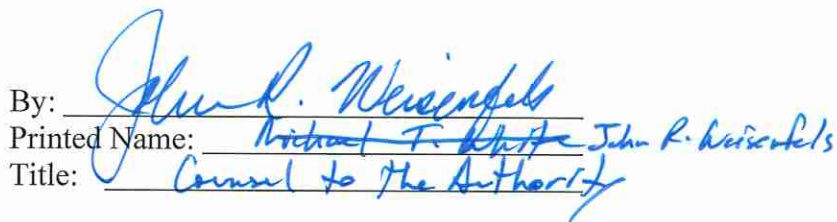 By: John R. Weisenfels
Printed Name: Michael T. White John R. Weisenfels
Title: Counsel to the Authority